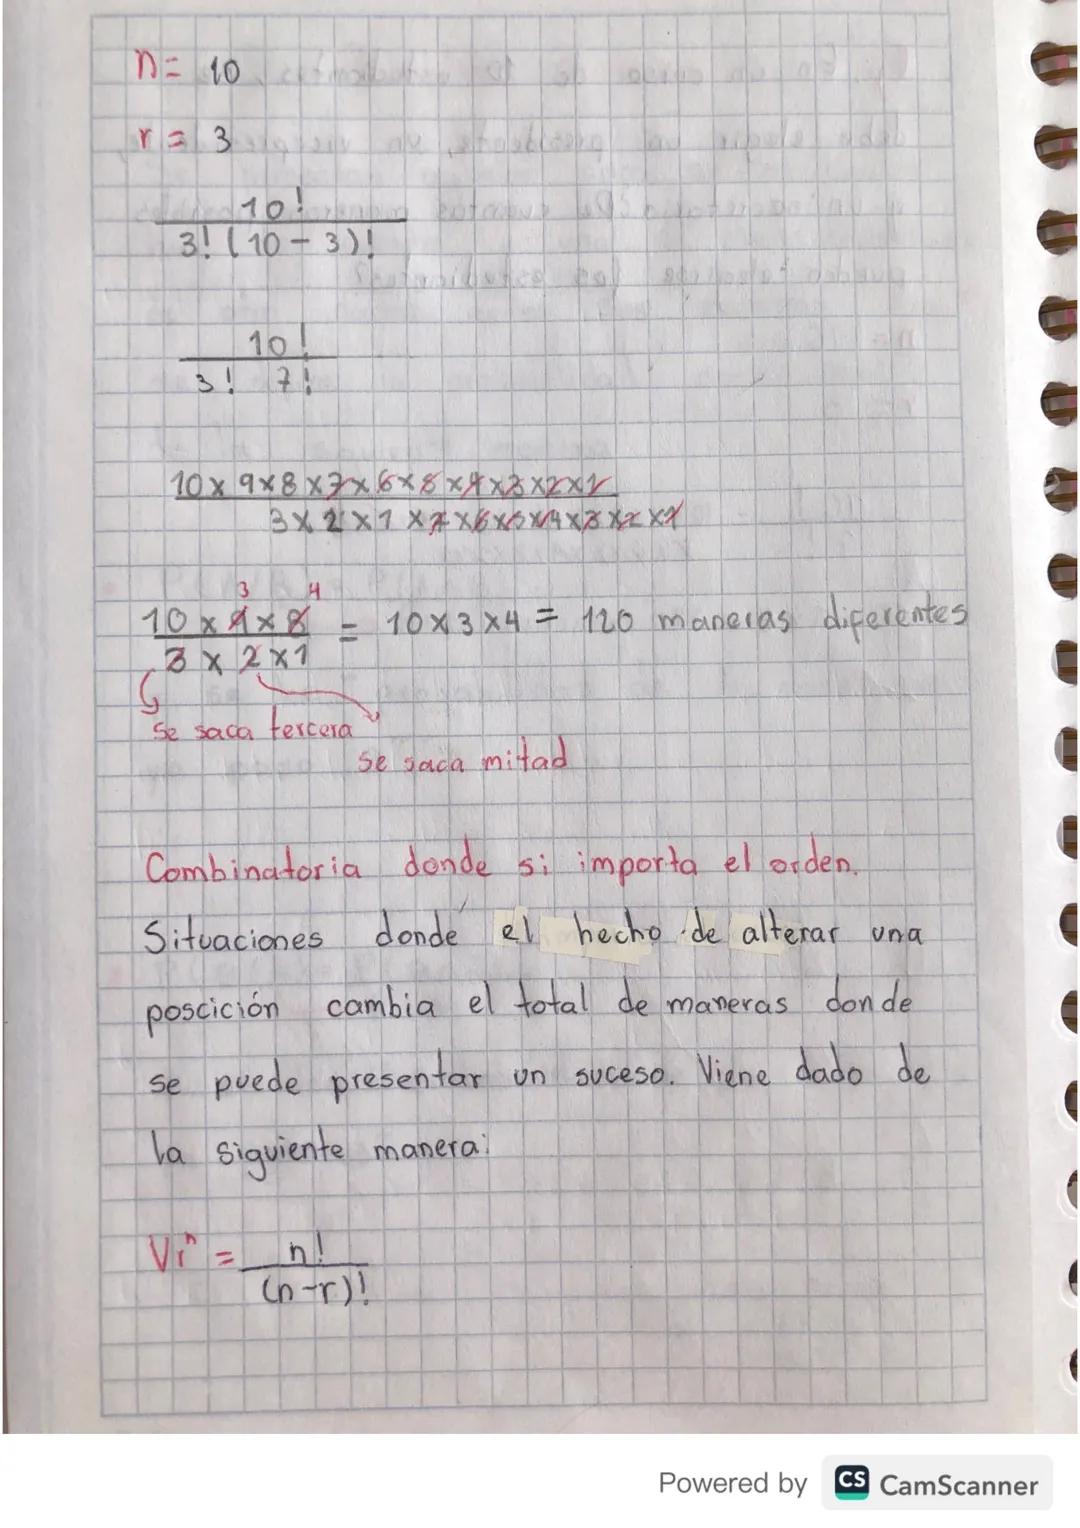 n= 10
r = 3
10!
3! (10 - 3)!
10!
3! 7!
10 x 9x8 x7x 6x5 x4 x3 x2x1
3x 2 x1 x7 x6x5x4x3 x2 x1
3 4
10 x 9 x 8 = 10x3x4 = 120 maneras diferentes
3 x 2 x1
se saca tercera
se saca mitad
Combinatoria donde si importa el orden.
Situaciones donde el hecho de alterar una
poscición cambia el total de maneras donde
se puede presentar un suceso. Viene dado de
la siguiente manera:
Vrⁿ = n!
(n-r)!
Powered by CS CamScanner